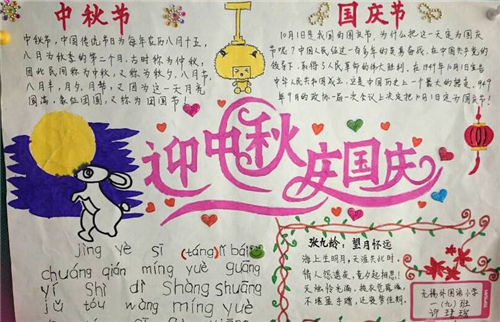 中秋节
中秋节，中国传统节日为每年农历八月十五，
八月为秋季的第二个月，古时称为仲秋，
因此民间称为中秋，又称为秋夕，八月节，
八月半，月夕，月节，又因为这一天月亮
圆满，象征团圆，又称为团圆节！
国庆节
10月1日是我国的国庆节，为什么把这一天定为国庆
节呢？中国人民经过一百多年的英勇奋战，在中国共产党的
领导下，取得了人民革命的伟大胜利，在1949年10月1日宣告
中华人民共和国成立，这是中国历史上一个最大的转变，1949
年9月的政协一届一次会议上决定把10月1日定为国庆节！
迎中秋 庆国庆
jìng yè sī (táng) lǐ bái
chuáng qián míng yuè guāng
yí shì dì shàng shuāng
jǔ tóu wàng míng yuè
张九龄：望月怀远
海上生明月，天涯共此时，
情人怨遥夜，竟夕起相思！
灭烛怜光满，披衣觉露滋，
不堪盈手赠，还寝梦佳期。
无锡外国语小学
一（九）班